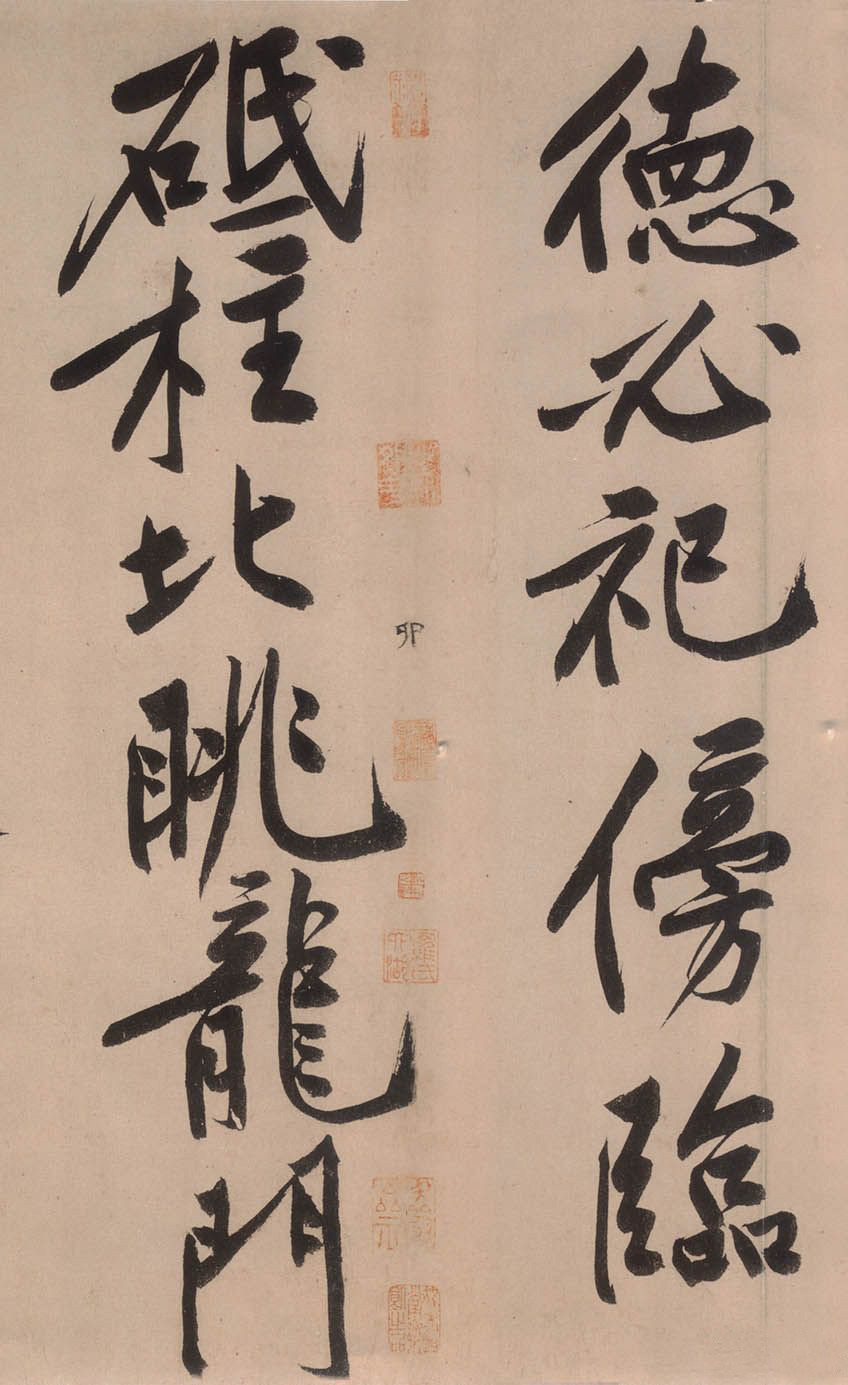 德必祀傍臨
砥柱北眺龍門
卯